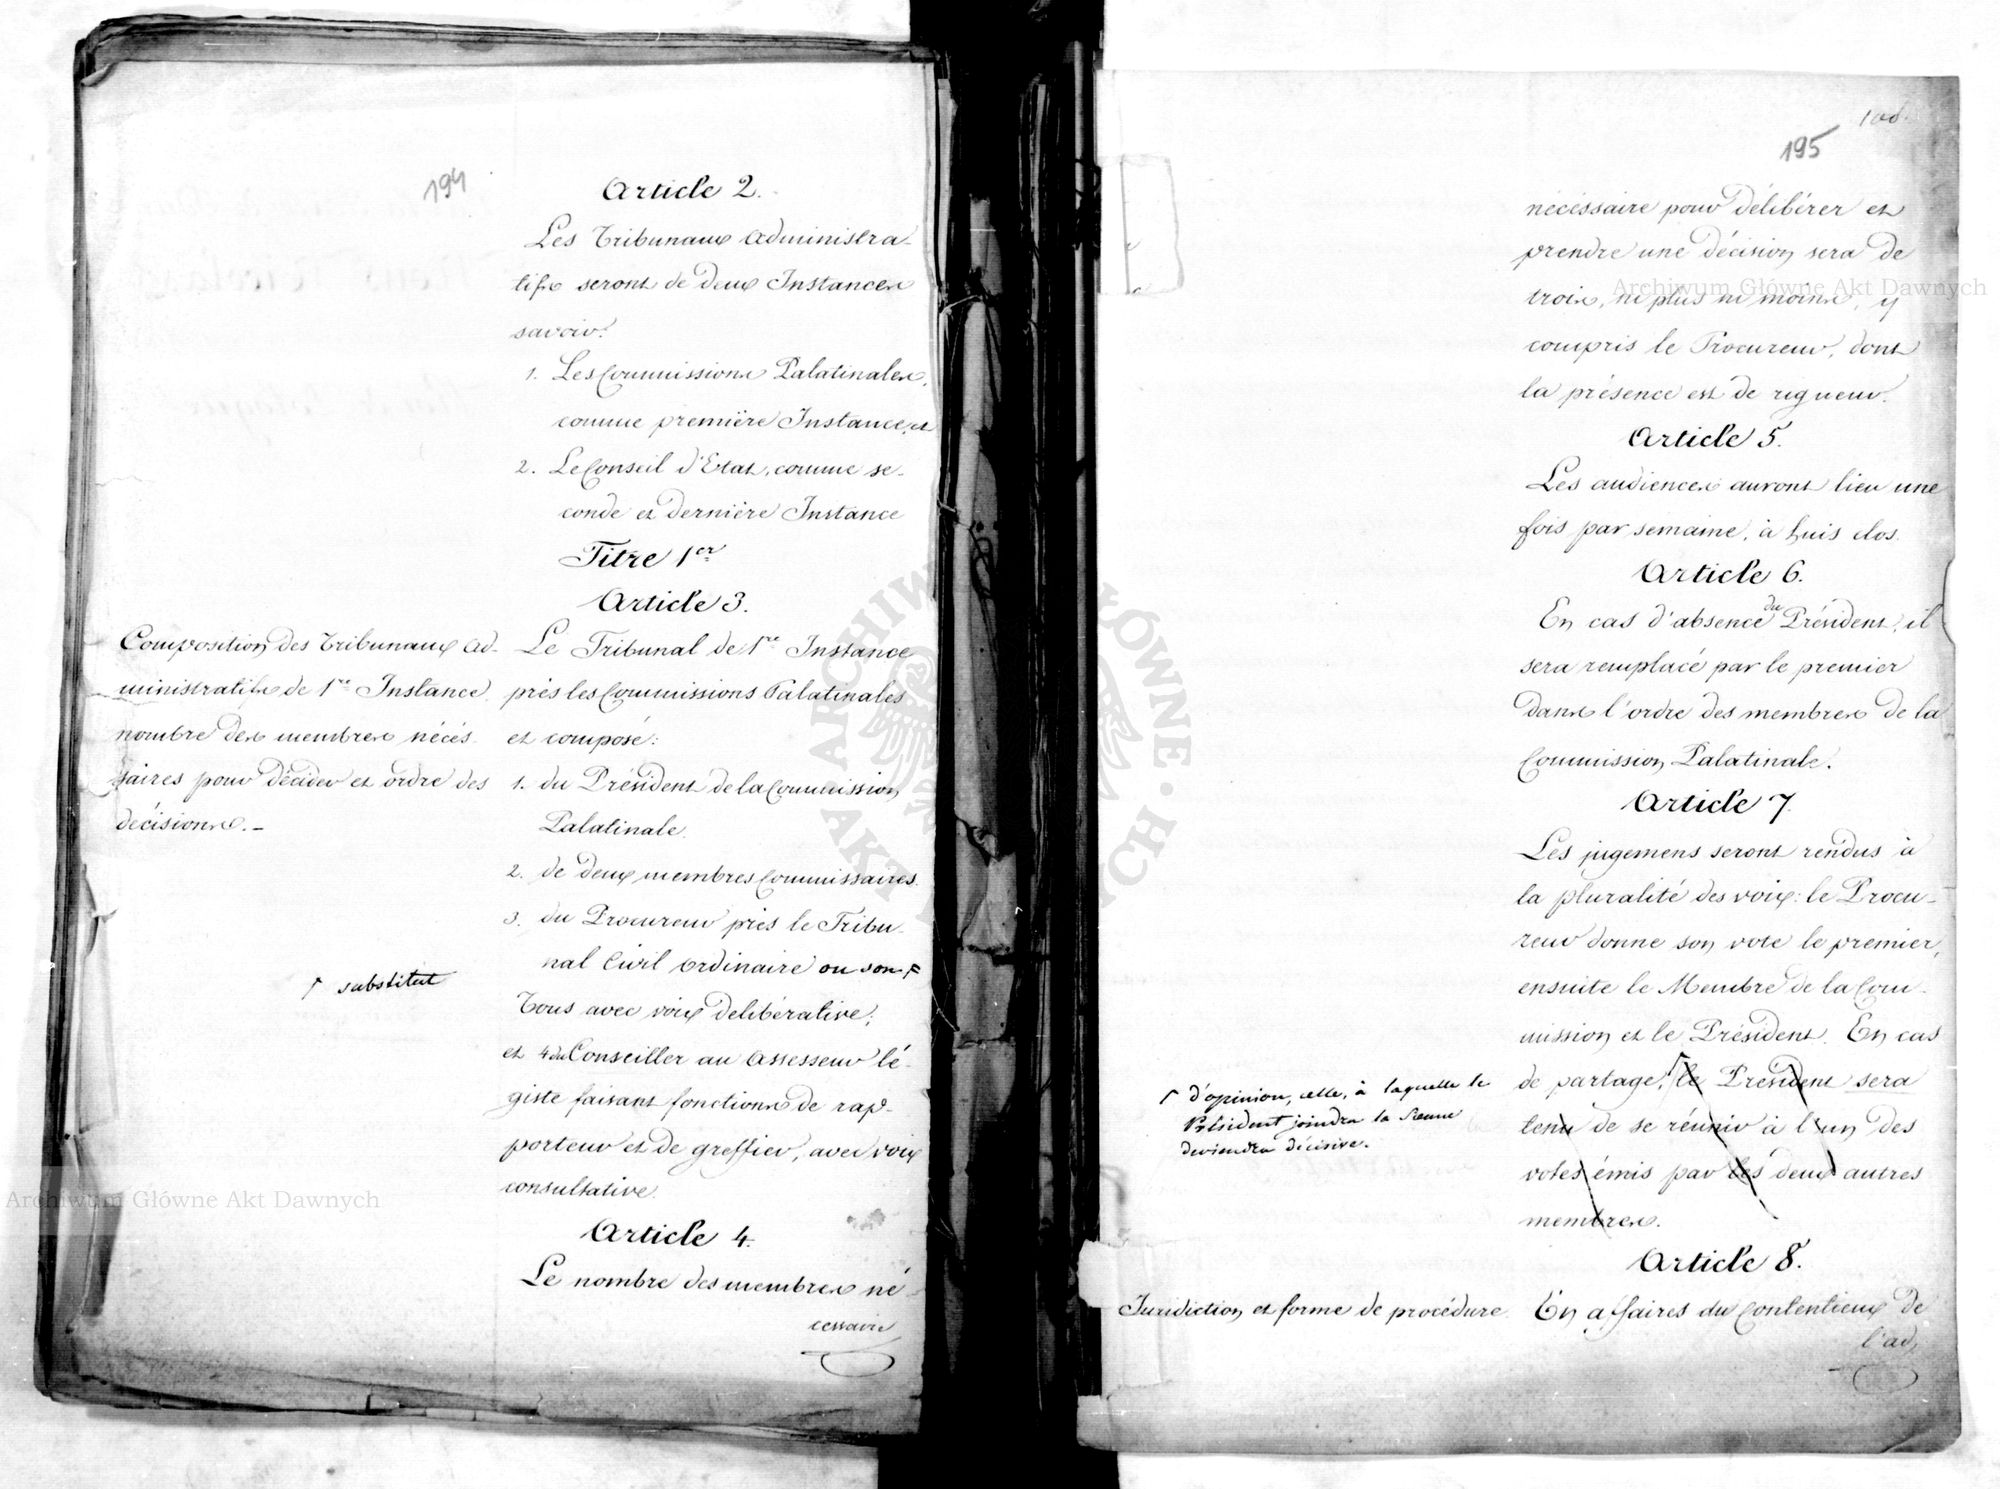 194
Article 2.
Les Tribunaux Administra-
tifs seront de deux Instances
savoir:
1. Les Commissions Palatinales,
comme première Instance, et
2. Le Conseil d'Etat, comme se-
conde et dernière Instance
Titre 1er
Article 3.
Composition des Tribunaux Ad-
ministratifs de 1re Instance.
nombre des membres néces-
saires pour décider et ordre des
décisions.-
Le Tribunal de 1re Instance
près les Commissions Palatinales
est composé:
1. du Président de la Commission
Palatinale.
2. de deux membres Commissaires.
3. du Procureur près le Tribu-
nal Civil ordinaire ou son
substitut
Tous avec voix delibérative;
et 4 du Conseiller au Assesseur lé-
giste faisant fonctions de rap-
porteur et de greffier, avec voix
consultative.
Article 4.
Le nombre des membres né-
cessaire
195
nécessaire pour délibérer et
prendre une décision sera de
trois, ni plus ni moins, y
compris le Procureur, dont
la présence est de rigueur.
Article 5.
Les audiences auront lieu une
fois par semaine, à huis clos.
Article 6.
En cas d'absence du Président, il
sera remplacé par le premier
dans l'ordre des membres de la
Commission Palatinale.
Article 7.
Les jugemens seront rendus à
la pluralité des voix: le Procu-
reur donne son vote le premier,
ensuite le Membre de la Com-
mission et le Président. En cas
de partage, le Président sera
tenu de se réunir à l'un des
votes émis par les deux autres
membres.
d'opinion, celle, à laquelle le
Président joindra la sienne
deviendra décisive.
Article 8.
Juridiction et forme de procédure.
En affaires du Contentieux de
l'ad
Archiwum Główne Akt Dawnych
Archiwum Główne Akt Dawnych